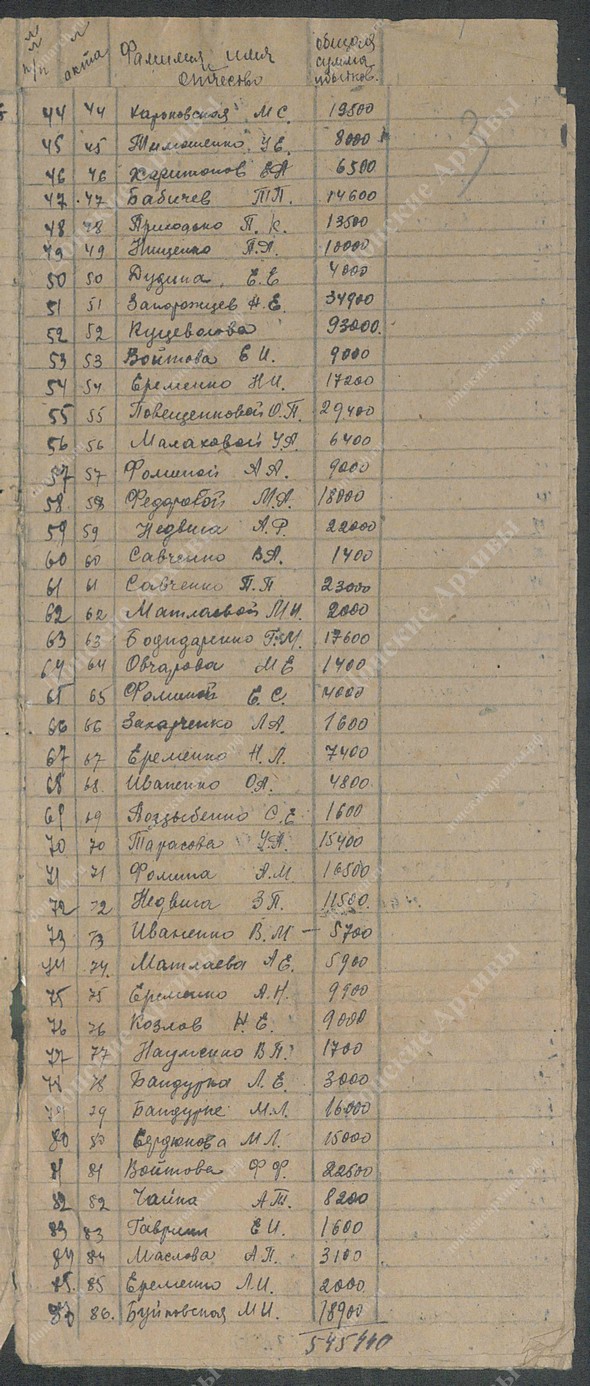 № п/п № акта Фамилия имя отчество общая сумма убытков.
3
44 44 Харьковская М С. 19500
45 45 Тимошенко У Е. 8000
46 46 Харитонов Е А 6500
47 47 Бабичев Т П. 14600
48 48 Приходько П. К. 13500
49 49 Нищенко П. А. 10000
50 50 Дудина, Е. Е 4000
51 51 Запорожцев Н. Е. 34900
52 52 Куцеволова 93000.
53 53 Войтова Е И. 9000
54 54 Еременко Н И. 17200
55 55 Повещенковой О. П. 29400
56 56 Малаховой У А. 6400
57 57 Фоминой А А. 9000
58 58 Федоровой М. А. 18000
59 59 Недвига А. Ф. 22000
60 60 Савченко В А. 1400
61 61 Савченко П. П 23000
62 62 Матлаевой М И. 2000
63 63 Бондаренко Г. М. 17600
64 64 Овчарова М Е 1400
65 65 Фоминой Е. С. 4000
66 66 Захарченко Л А. 1600
67 67 Еременко Н. Л. 7400
68 68. Иваненко О А. 4800.
69 69 С. Е 1600
70 70 Тарасова У А. 15400
71 71 Фомина А. М 16500
72 72 Недвига З П. 11500.
73 73 Иваненко В. М – 5700
74 74. Матлаева А Е. 5900
75 75 Еременко А. Н. 9900
76 76 Козлов Н. Е. 9000
77 77 Науменко В П. 1700
78 78 Бандурка Л. Е. 3000
79 79 Бандурке М. Л. 16000
80 80 Сердюкова М Л. 15000
81 81 Войтова Ф Ф. 22500
82 82 Чайка А Т. 8200
83 83 Гаврилл Е И. 1600
84 84 Маслова А П. 3100
85. 85 Еременко Л. И. 2000
86. Буйновская М И. 18900
545440